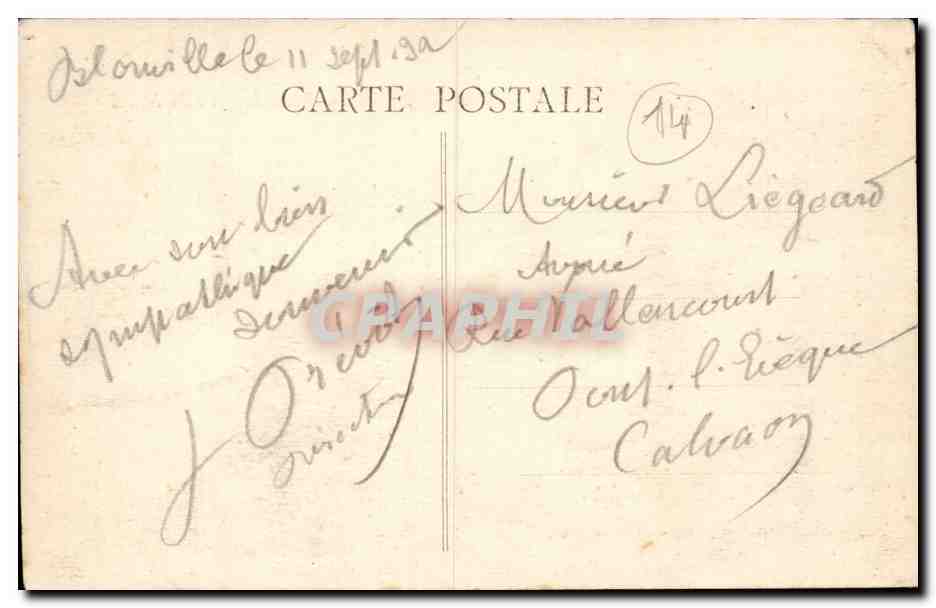 Blonville le 11 Sept
CARTE POSTALE
14
Avec son bien
sympathique
souvenir
J
Directeur
Monsieur Liégeard
Avoué
Rue Vallencourt
Pont-l'Evêque
Calvados
CPARPHIL